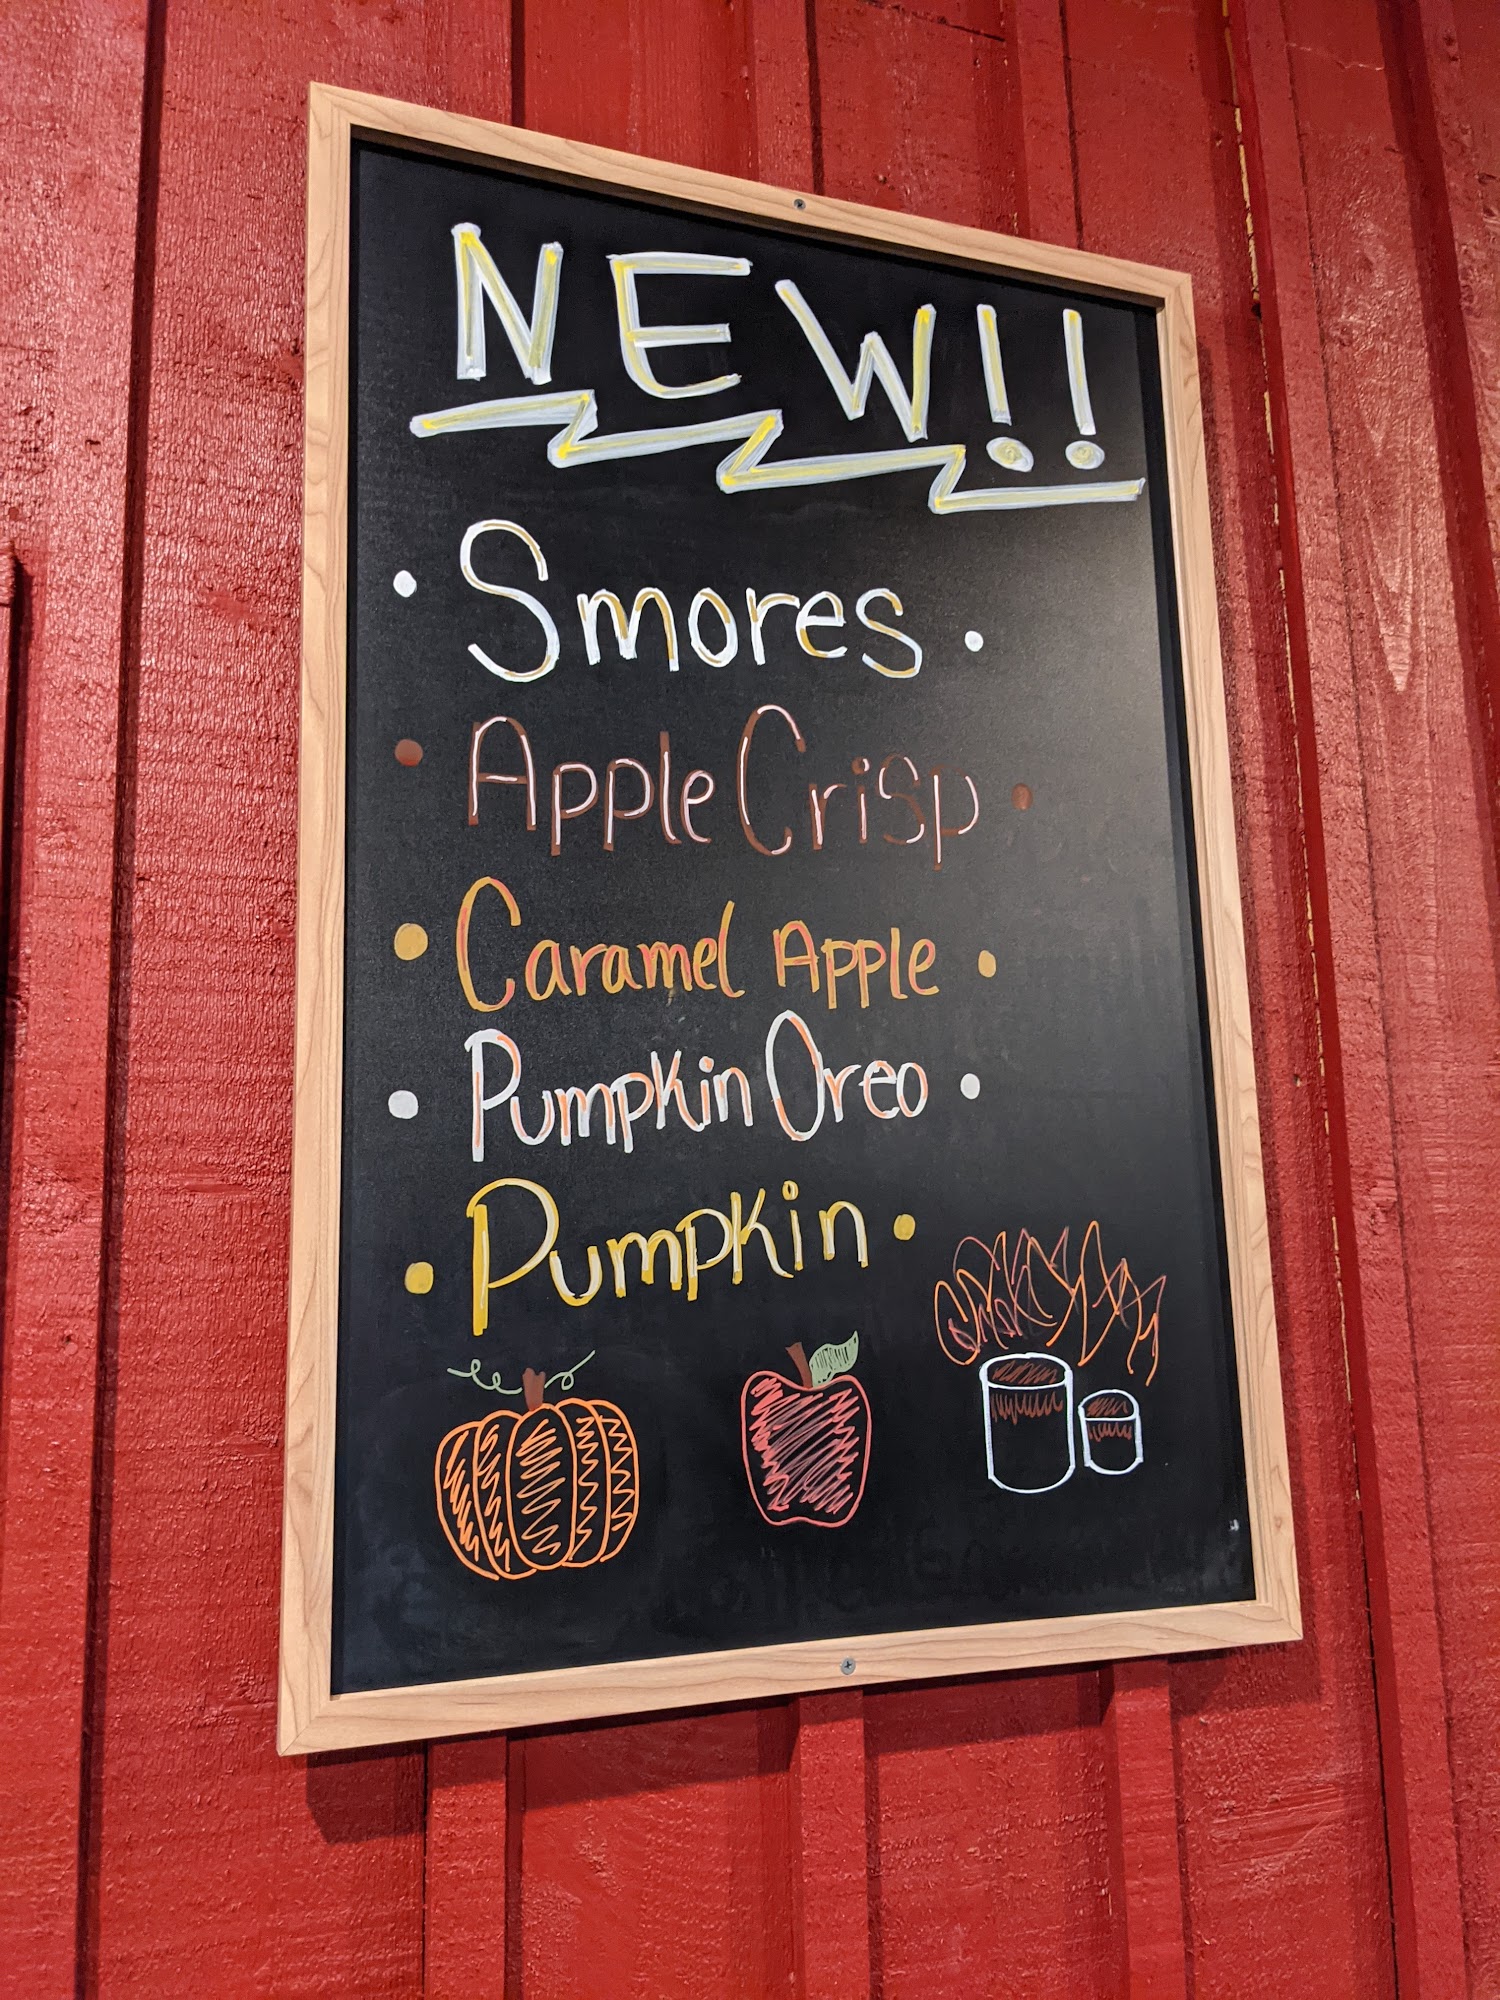 NEW!!
• Smores •
• Apple Crisp •
• Caramel Apple •
• Pumpkin Oreo •
• Pumpkin •